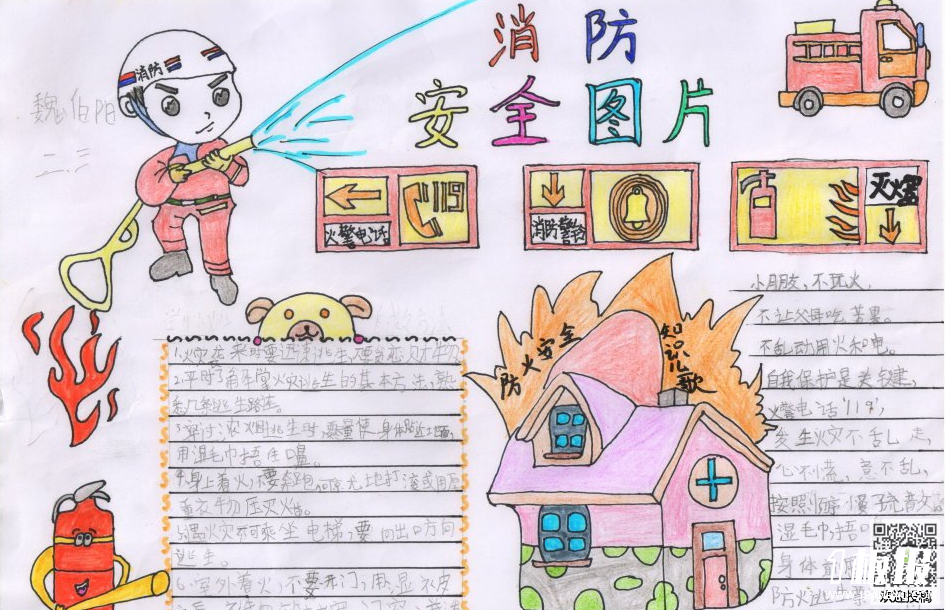 消防
安全图片
消防
魏伯阳
二.三
火警电话
119
消防警铃
灭火器
1.火灾袭来时要迅速逃生,不要贪恋财物
2.平时了解掌火灾逃生的基本方法,熟
悉几条逃生路线。
3.穿过浓烟逃生时,要尽量使身体贴近地面,
用湿毛巾捂住口鼻。
4.身上着火,不要奔跑,可就地打滚或用厚
重衣物压灭火苗。
5.遇火灾不可乘坐电梯,要向出口方向
逃生。
6.室外着火,不要开门,用湿
防火安全
知识儿歌
小朋友,不玩火,
不让父母吃苦果。
不乱动用火和电。
自我保护是关键,
火警电话"119",
发生火灾不乱走,
心不慌,意不乱,
按照
湿毛巾捂口
身体
防火